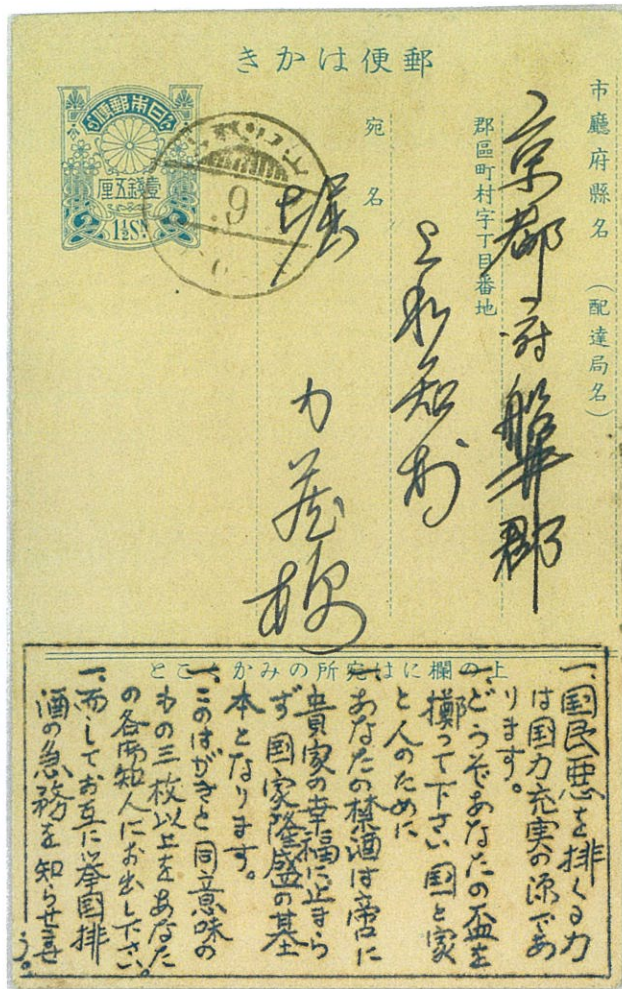 郵便はかき
大日本帝國郵便
壹錢五厘
1½Sn
9
市廳府縣名（配達局名）
郡區町村字丁目番地
宛名
京都府船井郡
上和知村
堀
力蔵様
上の欄には宛所のみかくこと
一、国民悪を排くる力
は国力充実の源であ
ります。
一、どうぞあなたの盃を
擲って下さい国と家
と人のために
一、あなたの禁酒は啻に
貴家の幸福に止まら
ず国家隆盛の基
本となります。
一、このはがきと同意味の
もの三枚以上をあなた
の各御知人にお出し下さい。
一、而してお互に挙国排
酒の急務を知らせませ
う。